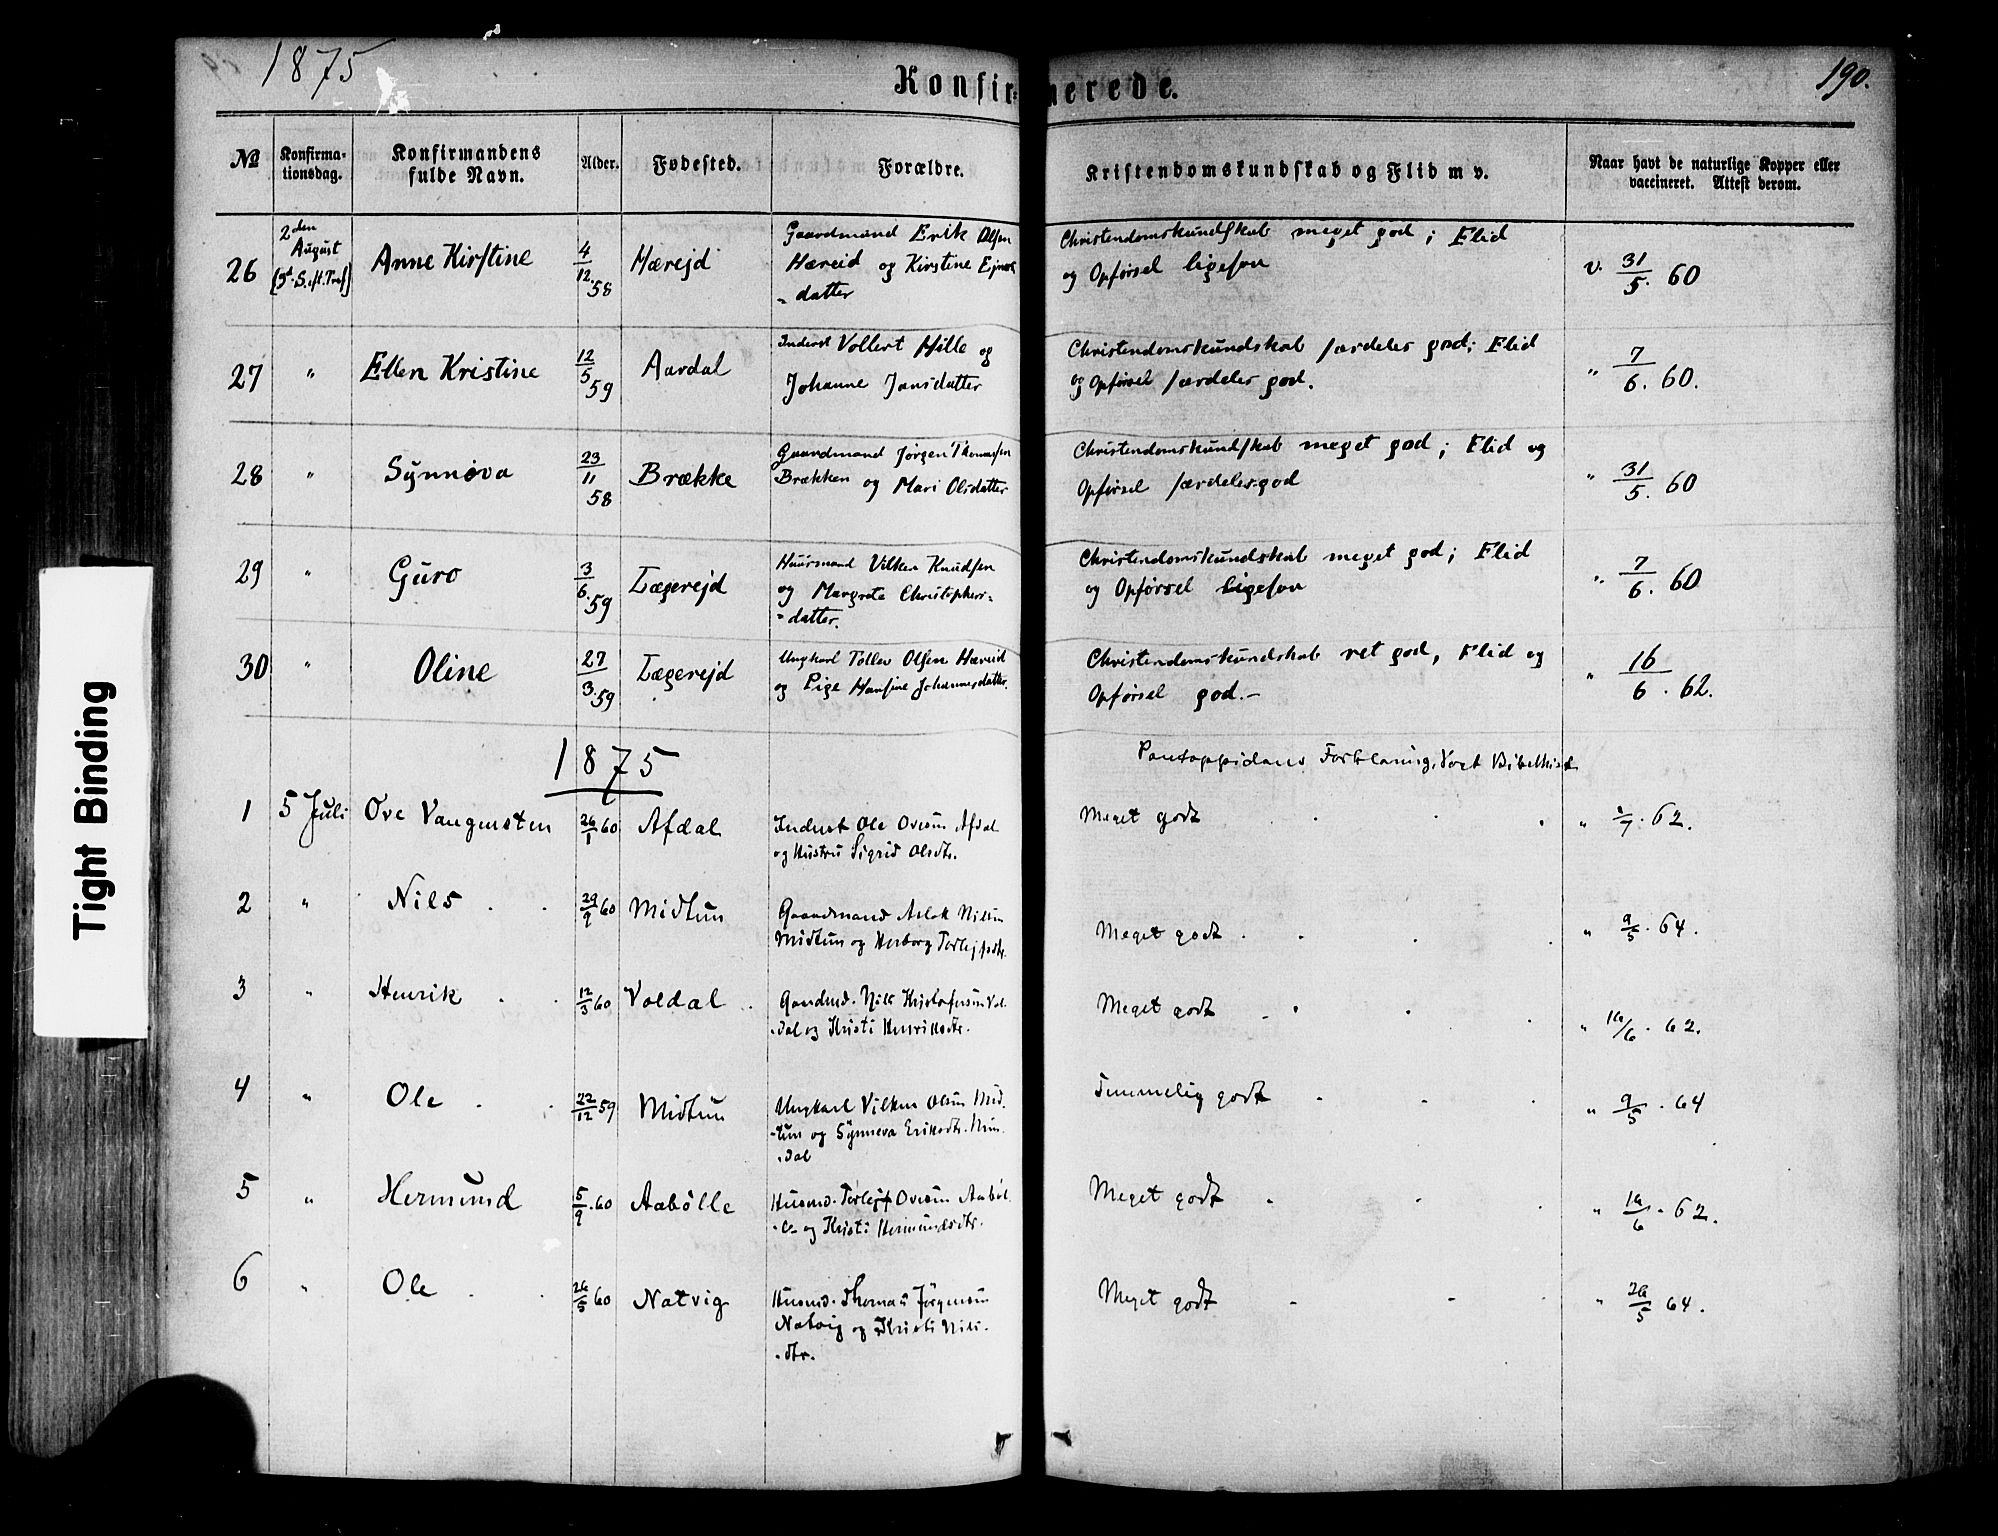 1875
190.
Konfirmerede.
No
Konfirma-
tionsdag.
Konfirmandens
fulde Navn.
Alder.
Fødested.
Forældre.
Kristendomskundskab og Flid m v.
Naar havt de naturlige Kopper eller
vaccineret. Attest derom.
26
2den
August
Anne Kirstine
4/12.58
Hæreid
Gaardmand Erik Olsen
Hæreid og Kirstine
datter
Christendomskundskab meget god; Flid
og Opførsel ligesaa
v. 31/5. 60
27 " Ellen Kristine 12/5 59 Aardal
Inderst Vollert Hille og
Johanne Jansdatter
Christendomskundskab særdeles god; Flid
og Opførsel særdeles god.
" 7/6. 60.
28 " Synnøva 23/11 58 Brække
Gaardmand Jørgen Thomassen
Brækken og Mari Olsdatter
Christendomskundskab meget god; Flid og
Opførsel særdeles god
" 31/5. 60
29 " Guro 3/6. 59 Lægerejd
Huusmand Vilken Knudsen
og Margrete Christophers-
datter.
Christendomskundskab meget god; Flid
og Opførsel ligesaa
" 7/6. 60
30 " Oline 27/3. 59 Lægerejd
Ungkarl Tollev Olsen Hæreid
og Pige Hansine Johannesdatter.
Christendomskundskab ret god, Flid og
Opførsel god.-
" 16/6. 62.
1875
Pontoppidans Forklaring, Vogt Bibelhist.
1 5 Juli Ove Vangensten 26/1 60 Afdal
Inderst Ole Ovesen Afdal
og Hustru Sigrid Olsdtr.
Meget godt
" /7. 62.
2 " Nils 29/9 60 Midtun
Gaardmand Aslak Nilsen
Midtun og Herborg Torlejfsdtr.
Meget godt
" 9/5. 64.
3 " Henrik 12/3 60 Voldal
Gaardmd. Nils Kristofersen Vol-
dal og Kristi Henriksdtr.
Meget godt
" 16/6. 62.
4 " Ole 22/12 59 Midtun
Ungkarl Vilken Olsen Mid-
tun og Synneva Eriksdtr.
dal
Temmelig godt
" 9/5. 64
5 " Hermund 5/9. 60 Aabølle
Husmd. Torlejf Ovesen Aabøl-
le og Kristi Hermundsdtr.
Meget godt
" 16/6. 62.
6 " Ole 26/5 60 Natvig
Husmd. Thomas Jørgensen
Natvig og Kristi Nils-
dtr.
Meget godt
" 26/5 64.
Tight Binding